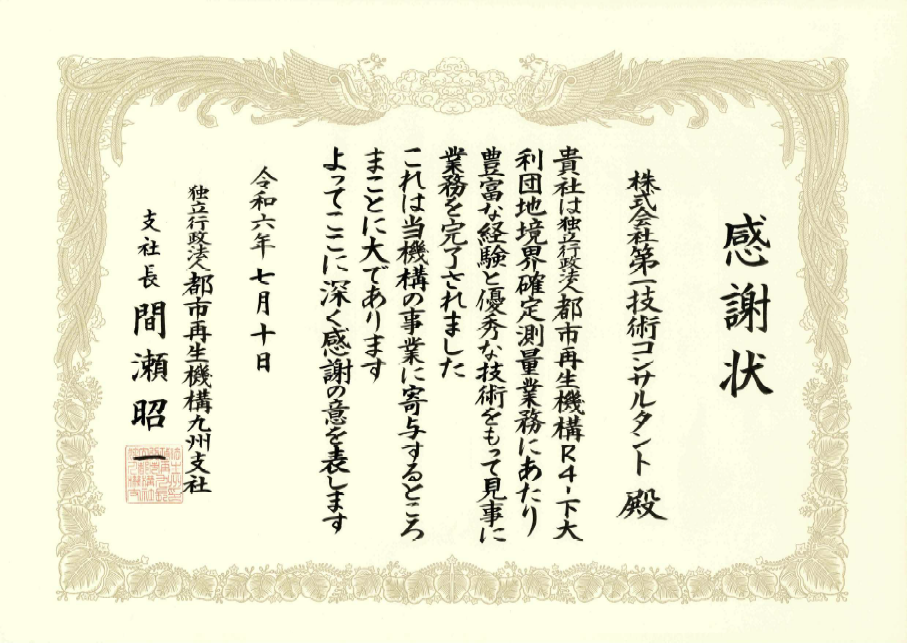 感謝状
株式会社第一技術コンサルタント 殿
貴社は独立行政法人都市再生機構R4-下大
利団地境界確定測量業務にあたり
豊富な経験と優秀な技術をもって見事に
業務を完了されました
これは当機構の事業に寄与するところ
まことに大であります
よってここに深く感謝の意を表します
令和六年七月十日
独立行政法人都市再生機構九州支社
支社長 間瀬昭一